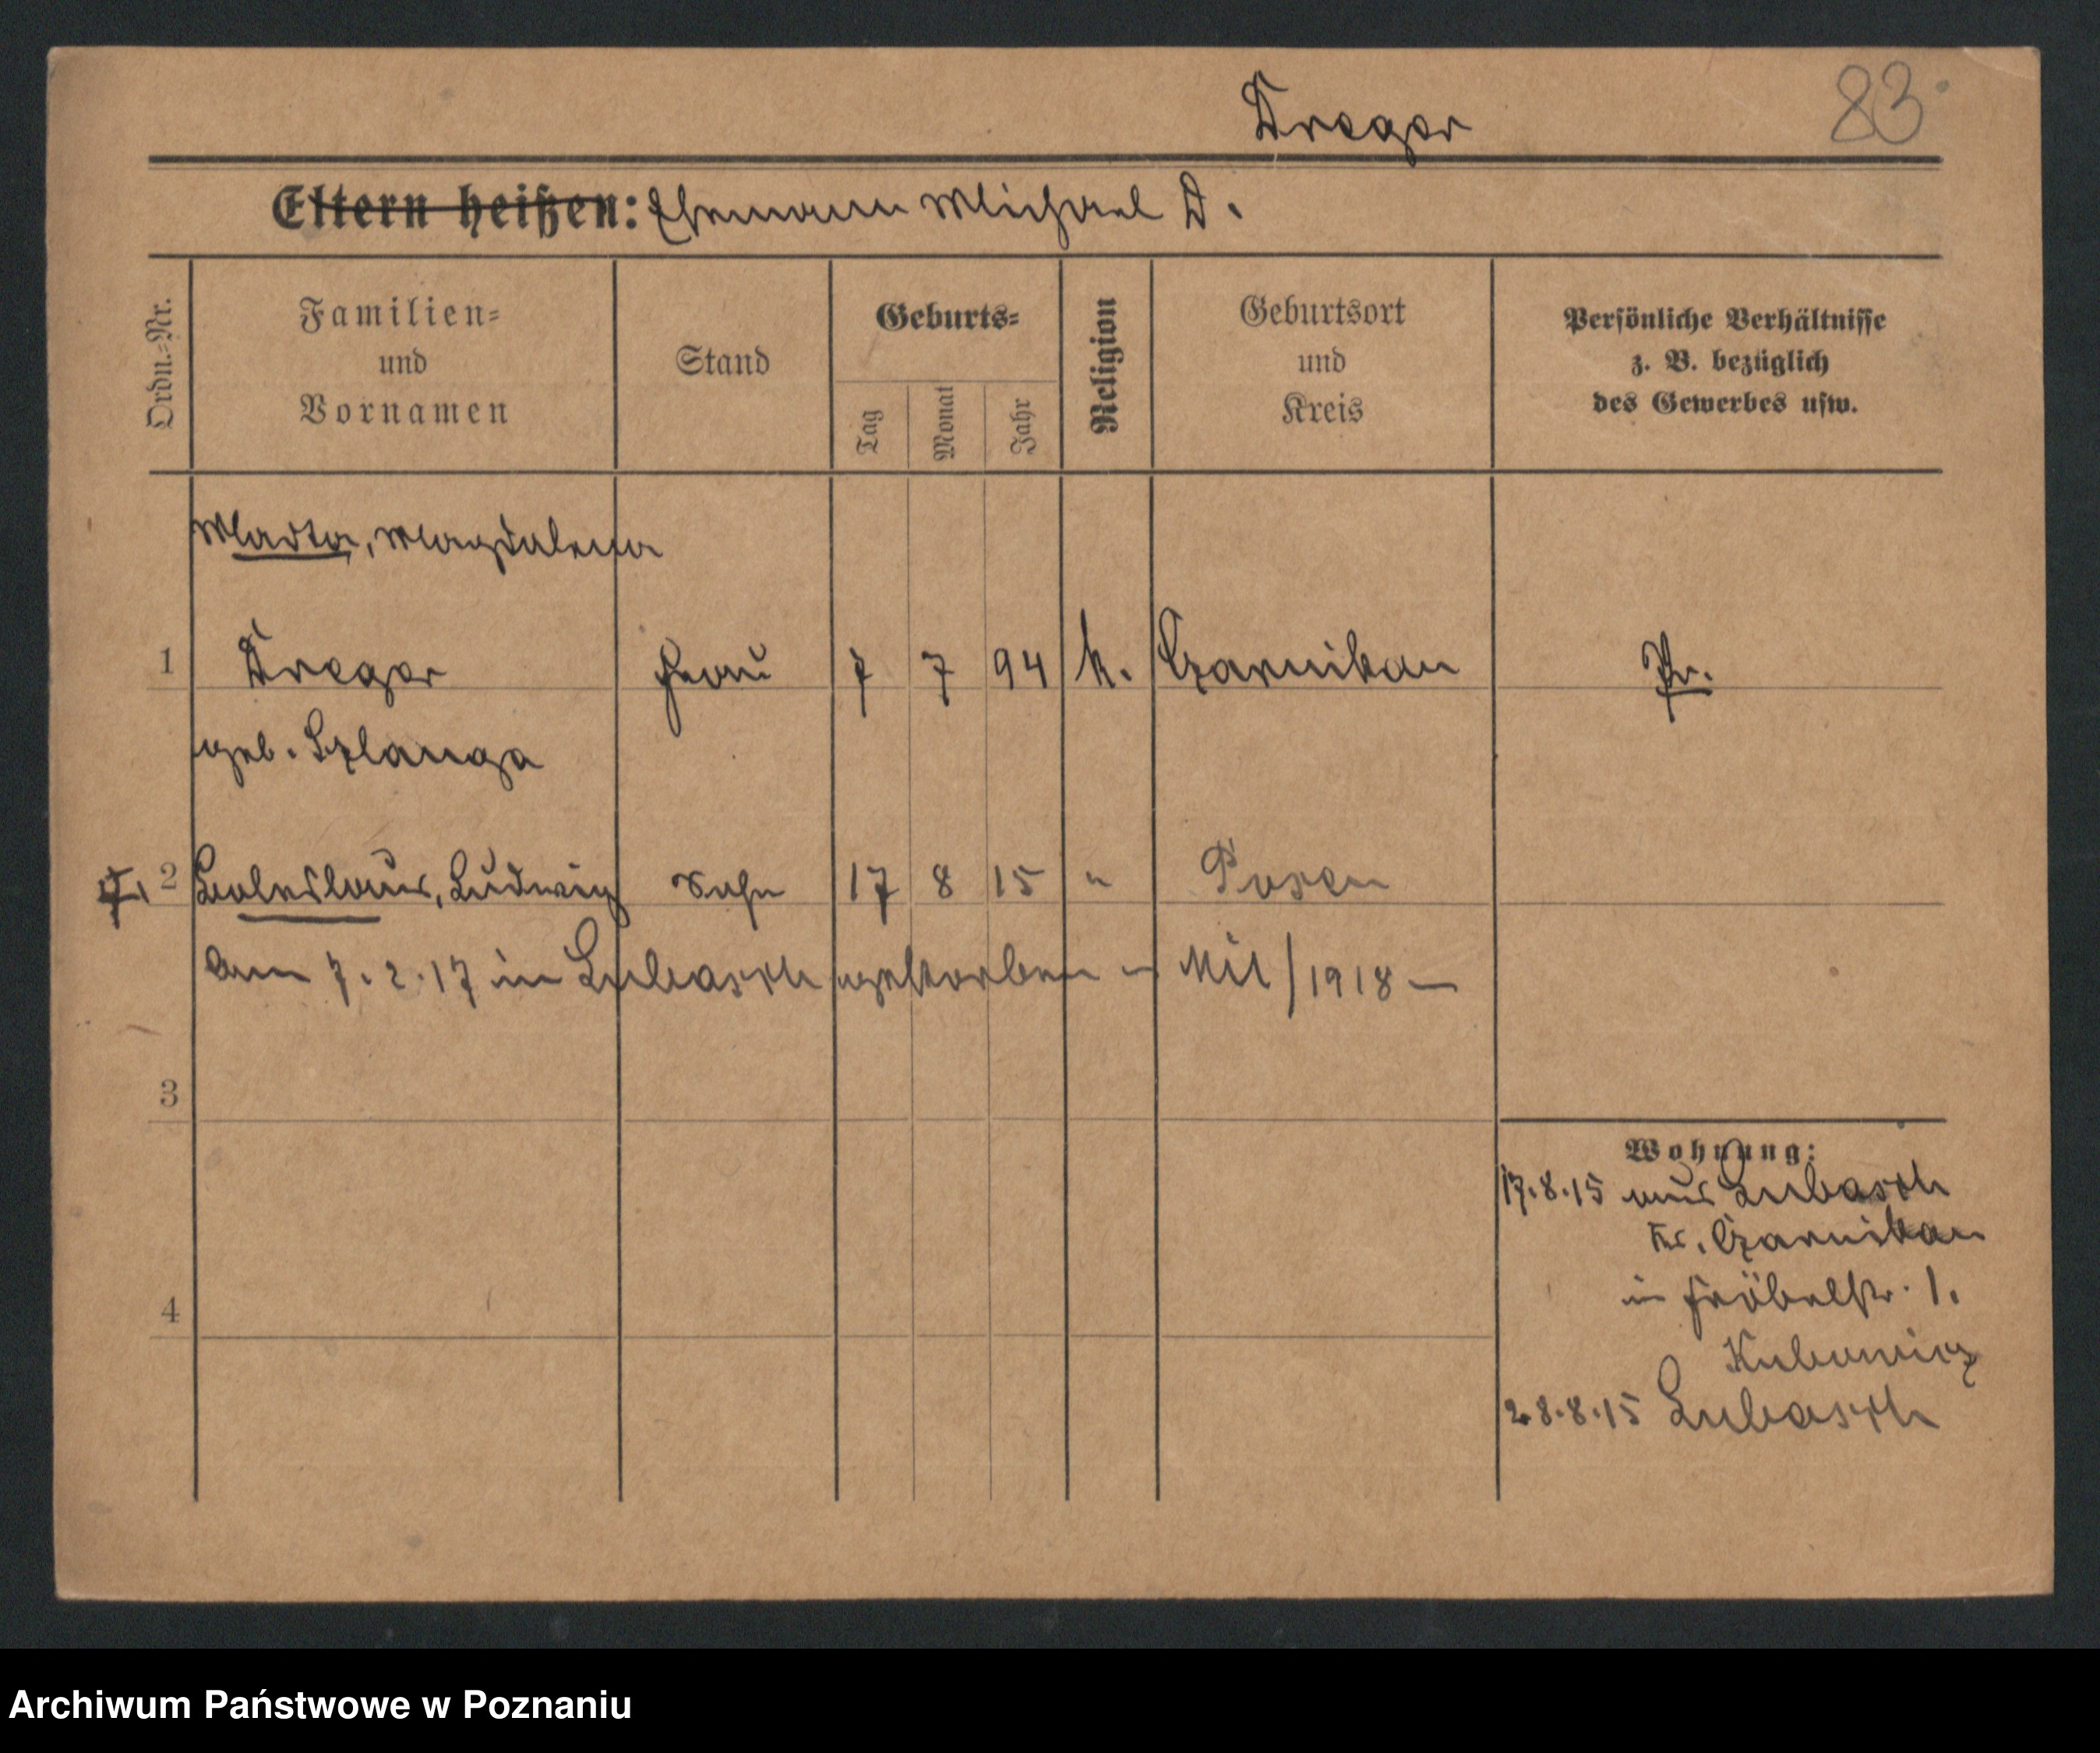 Dreger
83
Eltern heißen: Ehemann Michael D.
Ordn.-Nr.
Familien-
und
Vornamen
Stand
Geburts-
Tag
Monat
Jahr
Religion
Geburtsort
und
Kreis
Persönliche Verhältnisse
z. B. bezüglich
des Gewerbes usw.
Marta, Magdalena
1 Dreger Frau 7 7 94 k. Czarnikau Pr.
geb. Szlanga
2 Boleslaus, Ludwig Sohn 17 8 15 " Posen
Am 7.2.17 in Lubasch gestorben - Mil/1918 —
3
Wohnung:
17.8.15 aus Lubasch
Kr. Czarnikau
4
in Fröbelstr. 1.
28.8.15 Lubasch
Archiwum Państwowe w Poznaniu